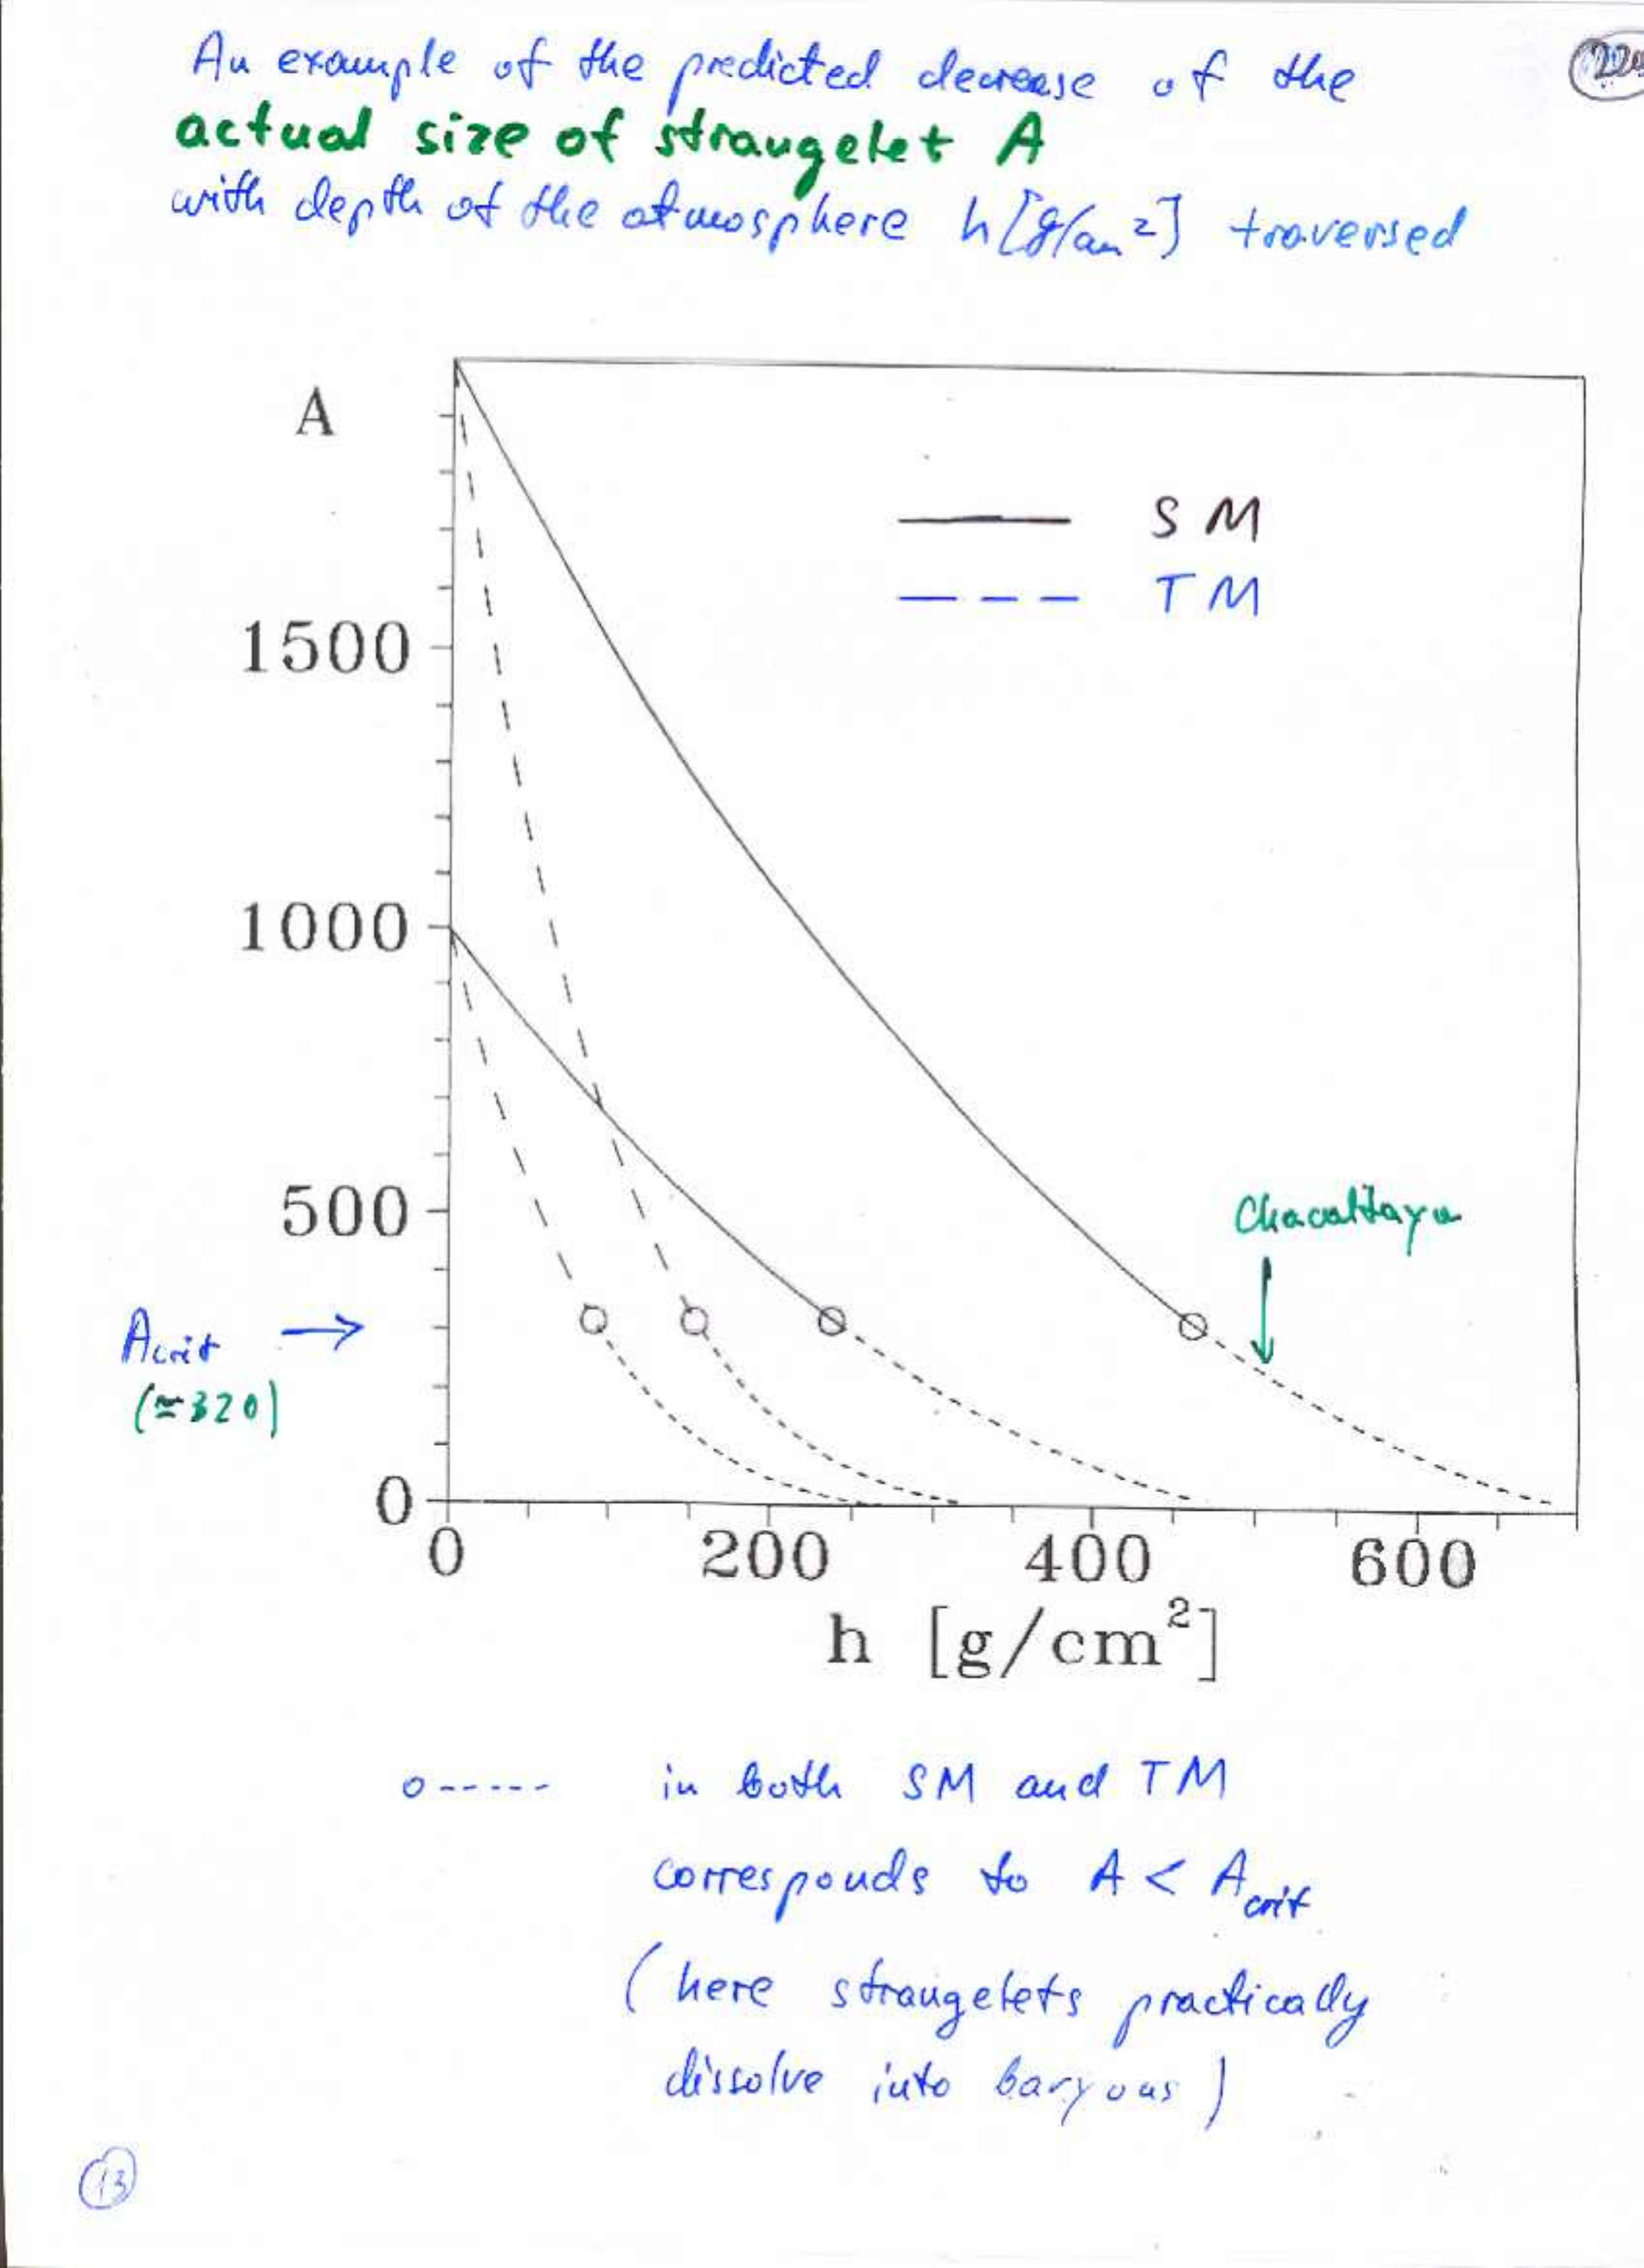 An example of the predicted decrease of the
actual size of strangelet A
with depth of the atmosphere h[g/cm²] traversed
A
S M
T M
1500
1000
500
Chacaltaya
Acrit →
(≃320)
0
0 200 400 600
h [g/cm²]
o----- in both SM and TM
corresponds to A < Acrit
(here strangelets practically
dissolve into baryons)
13